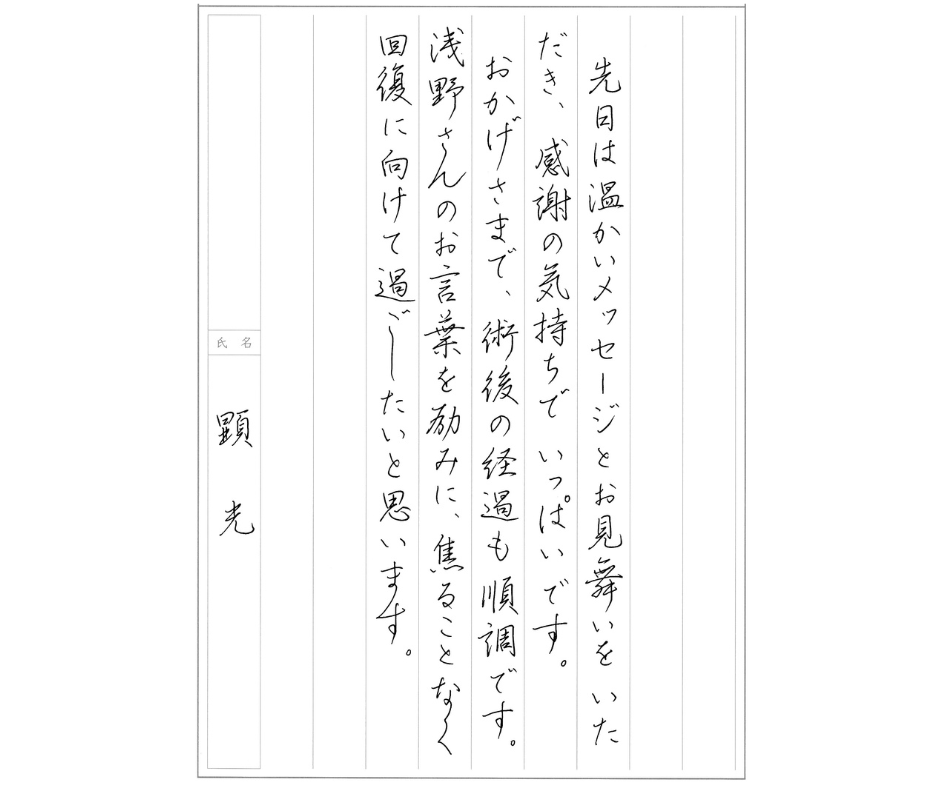 先日は温かいメッセージとお見舞いをいた
だき、感謝の気持ちでいっぱいです。
おかげさまで、術後の経過も順調です。
浅野さんのお言葉を励みに、焦ることなく
回復に向けて過ごしたいと思います。
氏名
顕光